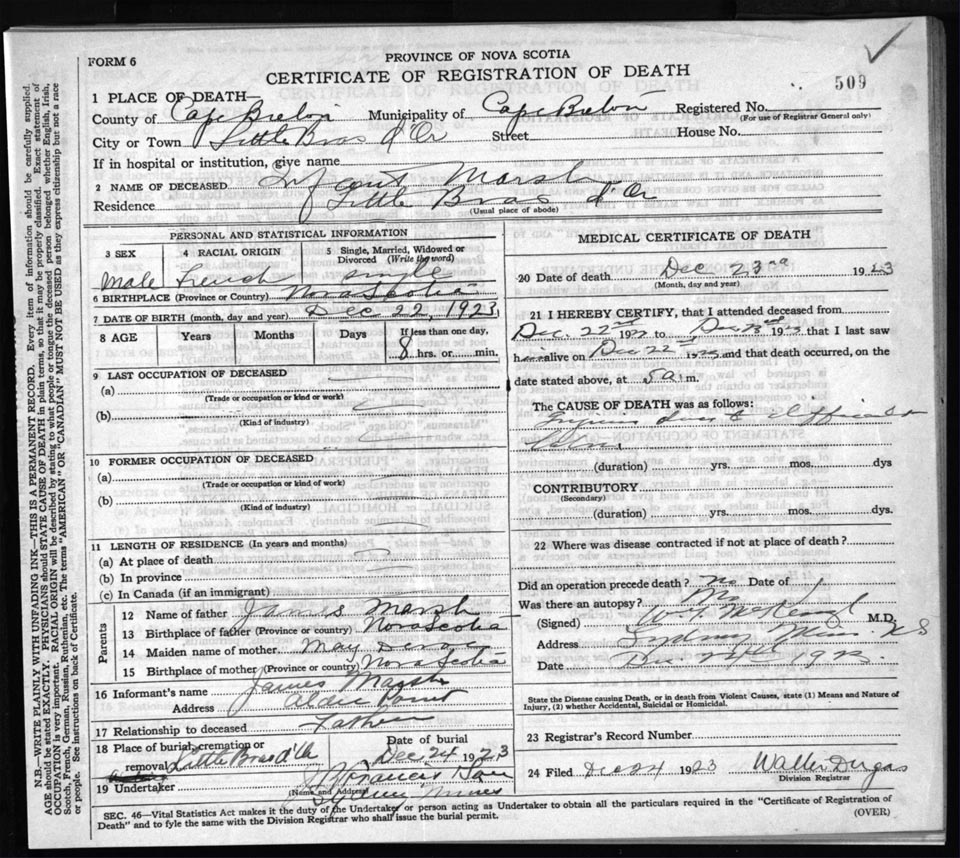 FORM 6
PROVINCE OF NOVA SCOTIA
CERTIFICATE OF REGISTRATION OF DEATH
509
1 PLACE OF DEATH—
County of Cape Breton Municipality of Cape Breton Registered No.
(For use of Registrar General only)
City or Town Little Bras d'Or Street House No.
If in hospital or institution, give name
2 NAME OF DECEASED Infant Marsh
Residence Little Bras d'Or
(Usual place of abode)
PERSONAL AND STATISTICAL INFORMATION
3 SEX 4 RACIAL ORIGIN 5 Single, Married, Widowed or Divorced (Write the word)
Male French single
6 BIRTHPLACE (Province or Country) Nova Scotia
7 DATE OF BIRTH (month, day and year) Dec 22, 1923
8 AGE Years Months Days If less than one day,
8 hrs. or min.
9 LAST OCCUPATION OF DECEASED
(a)
(Trade or occupation or kind or work)
(b)
(Kind of industry)
10 FORMER OCCUPATION OF DECEASED
(a)
(Trade or occupation or kind of work)
(b)
(Kind of industry)
11 LENGTH OF RESIDENCE (In years and months)
(a) At place of death
(b) In province
(c) In Canada (if an immigrant)
Parents
12 Name of father James Marsh
13 Birthplace of father (Province or country) Nova Scotia
14 Maiden name of mother May
15 Birthplace of mother (Province or country) Nova Scotia
16 Informant's name James Marsh
Address Alder Point
17 Relationship to deceased Father
18 Place of burial, cremation or removal Little Bras d'Or
Date of burial
Dec 24 1923
19 Undertaker Francis
(Name and Address) Sydney Mines
MEDICAL CERTIFICATE OF DEATH
20 Date of death Dec 23rd 1923
(Month, day and year)
21 I HEREBY CERTIFY, that I attended deceased from
Dec. 22nd 1923 to Dec 23rd 1923 that I last saw
him alive on Dec 22nd 1923 and that death occurred, on the
date stated above, at 5 a.m.
The CAUSE OF DEATH was as follows:
Injuries due to difficult
labor
(duration) yrs. mos. dys
CONTRIBUTORY
(Secondary)
(duration) yrs. mos. dys.
22 Where was disease contracted if not at place of death?
Did an operation precede death? No Date of
Was there an autopsy? No
(Signed) M.D.
Address Sydney Mines N S
Date Dec. 24th 1923
State the Disease causing Death, or in death from Violent Causes, state (1) Means and Nature of
Injury, (2) whether Accidental, Suicidal or Homicidal.
23 Registrar's Record Number
24 Filed Dec 24 1923 Walter Dugas
Division Registrar
SEC. 46—Vital Statistics Act makes it the duty of the Undertaker or person acting as Undertaker to obtain all the particulars required in the "Certificate of Registration of
Death" and to fyle the same with the Division Registrar who shall issue the burial permit.
(OVER)
N.B.—WRITE PLAINLY WITH UNFADING INK—THIS IS A PERMANENT RECORD. Every item of information should be carefully supplied.
AGE should be stated EXACTLY. PHYSICIANS should STATE CAUSE OF DEATH in plain terms, so that it may be properly classified. Exact statement of
OCCUPATION is very important. RACIAL ORIGIN will be described by stating to what people or tongue the deceased person belonged whether English, Irish,
Scotch, French, German, Russian, Ruthenian, etc. The terms "AMERICAN" OR "CANADIAN" MUST NOT BE USED as they express citizenship but not a race
or people. See instructions on back of Certificate.